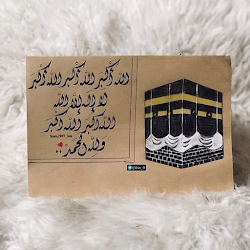 الله أكبر الله أكبر الله أكبر
لا إله إلا الله
الله أكبر الله أكبر
ولله الحمد